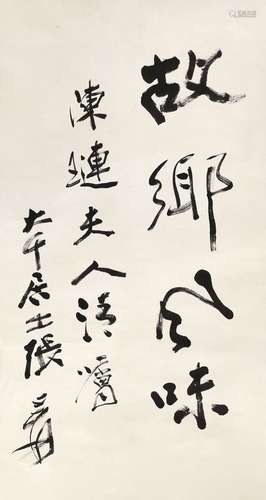 故鄉風味
陳璉夫人清囑
大千居士張爰